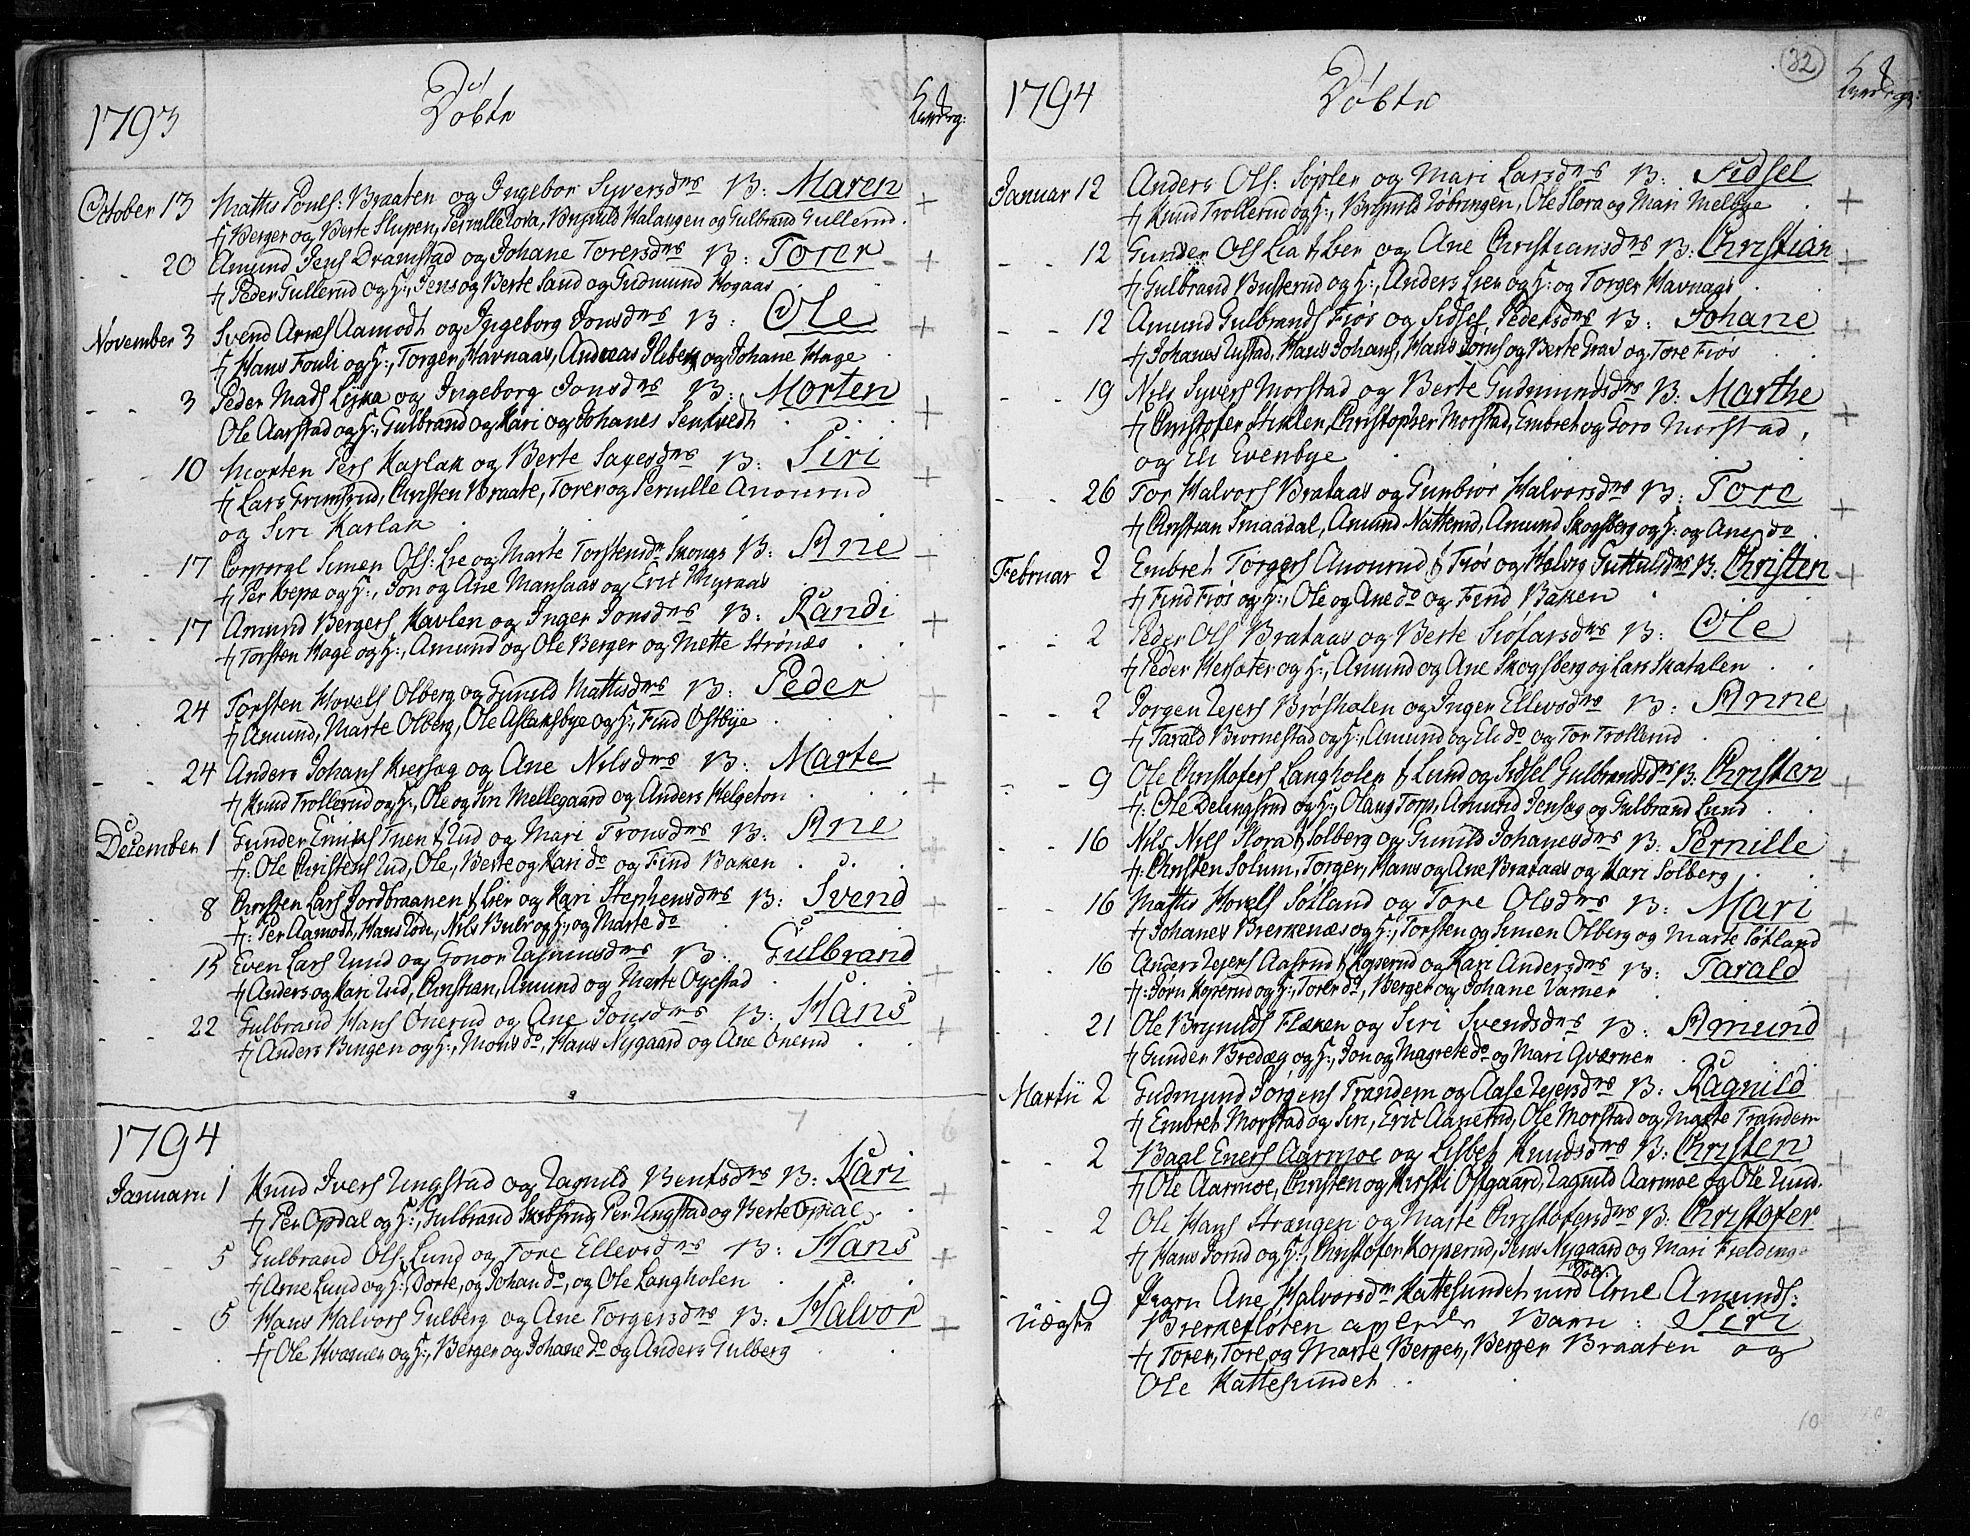 1793 Döbte
October 13 Mathis Pouls: Braaten og Ingebor Syversdns B: Maren
Berger og Berte Slupen, Pernille Pora, Brynild Halangen og Gulbrand Gullerud.
20 Amund Jens Dramstad og Johane Torersdns B: Torer
Peder Gullerud og H:, Jens og Berte Sand og Gudmund Hogaas
November 3 Svend Arnes Aamodt og Ingeborg Jonsdns B: Ole
Hans Fouli og H:, Torger Havnaas, Andreas og Johane Hage
3 Peder Mads og Ingeborg Jonsdns B: Morten
Ole Aarstad og H:, Gulbrand og Kari og Johanes Senkvedt
10 Morten Pers Karlak og Berte B: Siri
Lars Christen Braate, Torer og Pernille Amourud
og Siri Karlak
17 Corporal Simen Ols: Lie og Marte Torstensd. Skougs B: Ane
Per Kepa og H:, Jon og Ane Mansaas og Eric Myraas
17 Amund Bergers Kavlen og Inger Jonsdns B: Randi
Torsten Hage og H:, Amund og Ole Berger og Mette Strönæs
24 Torsten Hovels Olberg og Gunild Mathisdns B: Peder
Amund, Marte Olberg, Ole Aslaksbye og H:, Find Ostbye
24 Anders Johans Kiersag og Ane Nilsdns B: Marte
Knud Trollerud og H:, Ole og Siri Mellegaard og Anders Helgeton
December 1 Gunder Tuen Rud og Mari Tronsdns B: Ane
Ole Christens Rud, Ole, Berte og Kari do og Find Baken
8 Christen Lars Jordbraanen Lier og Kari Stephensdns B: Svend
Per Aamodt, Hans Nils Bulr og H:, og Marte do
15 Even Lars Rud og Gonor Rasmusdns B: Gulbrand
Anders og Kari Rud, Christian, Amund og Marte Ogestad
22 Gulbrand Hans Onerud og Ane Jonsdns B: Hans
Anders Bingen og H:, Mons do, Hans Nygaard og Ane Onerud
1794
Januarii 1 Knud Ivers Ringstad og Ragnild Bentsdns B: Kari
Per Opdal og H:, Gulbrand Per Ringstad og Berte Opdal
5 Gulbrand Ols: Lund og Tore Ellevsdns B: Hans
Arne Lund og H: Dorte, og Johan do, og Ole Langholen
5 Hans Halvors Gulberg og Ane Torgersdns B: Halvor
Ole Kværner og H:, Berger og Johane do og Anders Gulberg
32
1794 Döbte
Januar 12 Anders Ols: Söpler og Mari Larsdns B: Sidsel
Knud Trollerud og H:, Brynild Ole Flora og Mari Melbye
12 Gunder Ols Lia Lier og Ane Christiansdns B: Christian
Gulbrand Busterud og H:, Anders Lier og H: og Torger Havnaas
12 Amund Gulbrands Fiös og Sidsel Pedersdns B: Johane
Johanes Rustad, Hans Johans, Hans Jorns og Berte og Tore Fiös
19 Nils Syvers Morstad og Berte Gudmundsdns B: Marthe
Christofer Stiklen, Christopher Morstad, Embret og Goro Morstad,
og Eli Evenbye
26 Tor Halvors Brataas og Gunbior Halvorsdns B: Tore
Christian Smaadal, Amund Natterud, Amund Skogsberg og H: og Ane do
Februar 2 Embret Torgers Amourud Fiös og Helvig Guttulsdns B: Christen
Find Fiös og H:, Ole og Ane do og Find Baken
2 Peder Ols Brataas og Berte Siofarsdns B: Ole
Peder Hersæter og H:, Amund og Ane Skogsberg og Lars Skatalen
2 Jorgen Reiers Brösholen og Inger Ellevsdns B: Anne
Tarald Biornestad og H:, Amund og Eli do og Tor Trollerud
9 Ole Christofers Langholen Lund og Sidsel Gulbrandsdns B: Christian
Ole og H:, Olaug Torp, Amund Jensag og Gulbrand Lund
16 Nils Nils Flora Solberg og Gunild Johanesdns B: Pernille
Christen Solum, Torger, Hans og Ane Brataas og Kari Solberg
16 Mathis Hovels Sötland og Tore Olsdns B: Mari
Johanes Brerkenæs og H:, Torsten og Simen Olberg og Marte Sötland
16 Anders Reiers Aasrud Koperud og Kari Andersdns B: Tarald
Jörn Koperud og H:, Torer do, Berger og Johane Varner
21 Ole Brynilds Flæken og Siri Svendsdns B: Amund
Gunder Bredæg og H:, Jon og Magrete do og Mari Qværner
Martii 2 Gudmund Jörgens Trandem og Aase Reiersdns B: Ragnild
Embret Morstad og Siri, Eric Aanerud, Ole Morstad og Marte Trandem
2 Baal Eners Aarmoe og Lisbet Knudsdns B: Christen
Ole Aarmoe, Christen og Kirsti Ostgaard, Ragnild Aarmoe og Ole Rund.
2 Ole Hans Strængen og Marte Christofersdns B: Christofer
Hans Sorud og H:, Christofer Korperud, Jens Nygaard og Mari Fielding
9 Pigen Ane Halvorsdn Kattesundet med Arne Amunds:
uægte Brerkefloten Barn: Siri
Torer, Tore og Marte Berger, Berger Braaten og
Ole Kattesundet